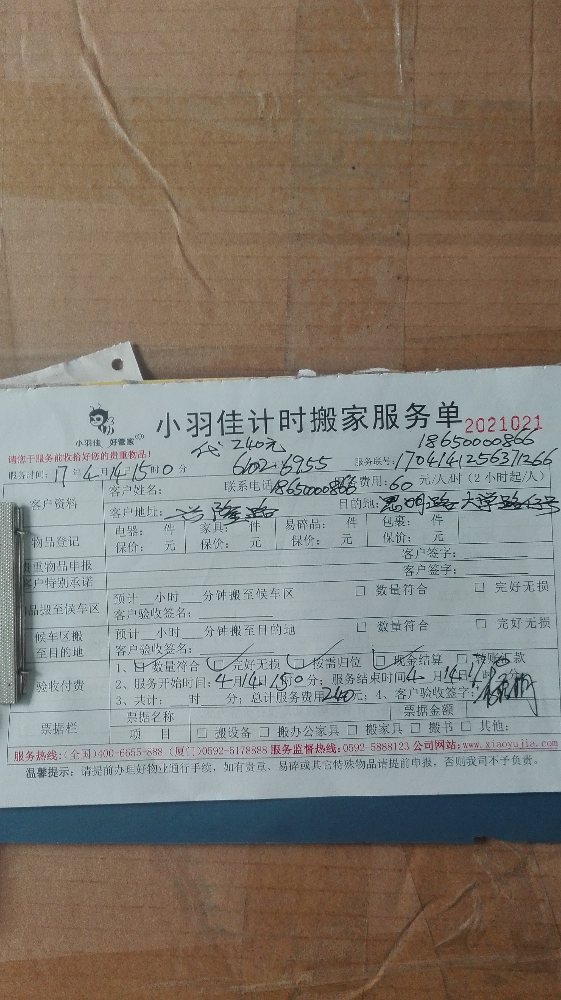 小羽佳 好管家
小羽佳计时搬家服务单 2021021
请您于服务前收拾好您的贵重物品!
240元 18650000866
6102-6955
服务时间: 17年4月14日15时0分 服务联号: 170414125631266
客户资料 客户姓名: 联系电话 18650000866 费用: 60 元/人/时 (2小时起/人)
客户地址: 目的地: 思明 大学路
物品登记 电器: 件 家具: 件 易碎品: 件 包装: 件
保价: 元 保价: 元 保价: 元 保价: 元
贵重物品申报 客户签字:
客户特别承诺 客户签字:
物品搬至候车区 预计__小时__分钟搬至候车区 □ 数量符合 □ 完好无损
客户验收签名:
候车区搬至目的地 预计__小时__分钟搬至目的地 □ 数量符合 □ 完好无损
客户验收签名:
验收付费 1、□ 数量符合 □ 完好无损 □ 按需归位 □ 现金结算 □ 转账汇款
2、服务开始时间: 4月14日15时0分; 服务结束时间 4月14日
3、共计: 时 分; 总计服务费用 240 元; 4、客户验收签字:
票据栏 票据名称 票据金额
项目 □ 搬设备 □ 搬办公家具 □ 搬家具 □ 搬书 □ 其他:
服务热线:(全国)400-6655-888 (厦门)0592-5178888 服务监督热线:0592-5888123 公司网站:www.xiaoyujia.com
温馨提示: 请提前办理好物业通行手续, 如有贵重、易碎或其它特殊物品请提前申报, 否则我司不予负责。